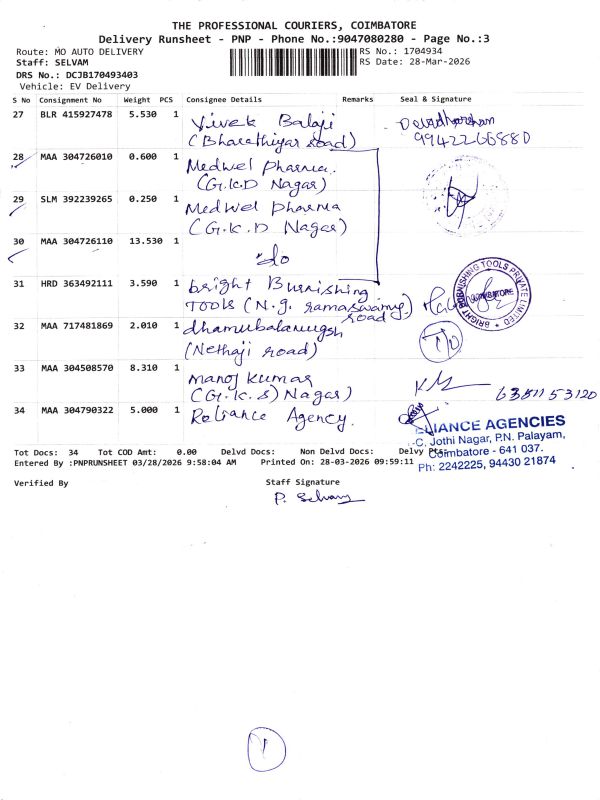 THE PROFESSIONAL COURIERS, COIMBATORE
Delivery Runsheet - PNP - Phone No.:9047080280 - Page No.:3
Route: MO AUTO DELIVERY
RS No.: 1704934
Staff: SELVAM
RS Date: 28-Mar-2026
DRS No.: DCJB170493403
Vehicle: EV Delivery
S No Consignment No Weight PCS Consignee Details Remarks Seal & Signature
27 BLR 415927478 5.530 1 Vivek Balaji
(Bharathiyar road)
Devadharshan
9942266880
28 MAA 304726010 0.600 1 Medwel pharma.
(G.K.D Nagar)
29 SLM 392239265 0.250 1 Medwel pharma
(G.K.D Nagar)
30 MAA 304726110 13.530 1 do
31 HRD 363492111 3.590 1 bright Burnishing
TOOLS (N.g. ramaswamy road)
BRIGHT BURNISHING TOOLS PRIVATE LIMITED
COIMBATORE
32 MAA 717481869 2.010 1
(Nethaji road)
33 MAA 304508570 8.310 1 manoj kumar
(G.K.S) Nagar)
34 MAA 304790322 5.000 1 Reliance Agency.
LIANCE AGENCIES
C, Jothi Nagar, P.N. Palayam,
Coimbatore - 641 037.
Ph: 2242225, 94430 21874
Tot Docs: 34 Tot COD Amt: 0.00 Delvd Docs: Non Delvd Docs: Delvy Pts:
Entered By :PNPRUNSHEET 03/28/2026 9:58:04 AM Printed On: 28-03-2026 09:59:11
Verified By Staff Signature
P. Selvam
1